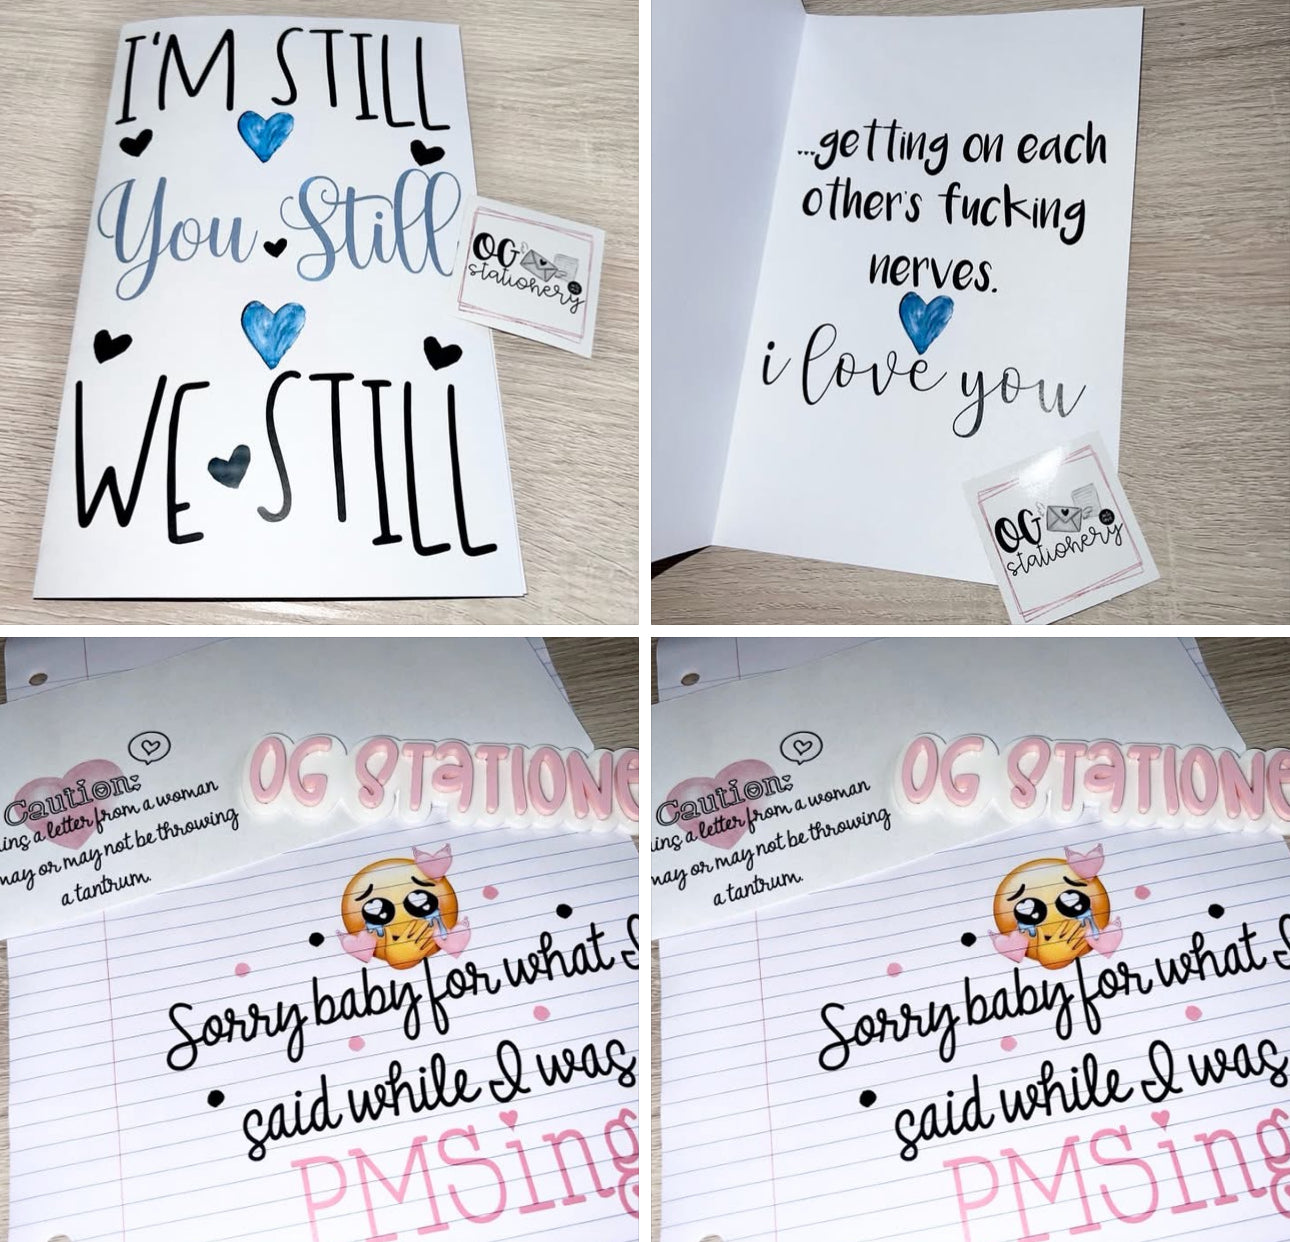 I'M STILL
You Still
WE STILL
OG
stationery
...getting on each
other's fucking
nerves.
i love you
OG
stationery
Caution:
a letter from a woman
may or may not be throwing
a tantrum.
OG STATIONE
Sorry baby for what I
said while I was
PMSing
Caution:
a letter from a woman
may or may not be throwing
a tantrum.
OG STATIONE
Sorry baby for what I
said while I was
PMSing